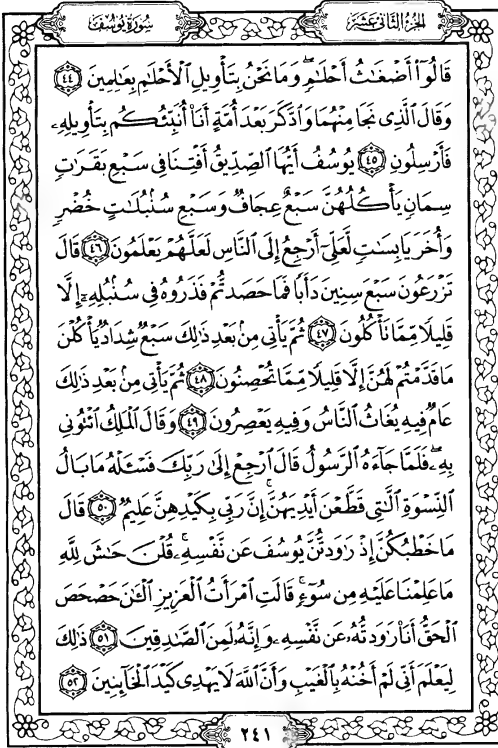 سُورَةُ يُوسُفَ
الجزء الثاني عشر
قَالُوٓا۟ أَضْغَٰثُ أَحْلَٰمٍۢ ۖ وَمَا نَحْنُ بِتَأْوِيلِ ٱلْأَحْلَٰمِ بِعَٰلِمِينَ ٤٤
وَقَالَ ٱلَّذِى نَجَا مِنْهُمَا وَٱدَّكَرَ بَعْدَ أُمَّةٍ أَنَا۠ أُنَبِّئُكُم بِتَأْوِيلِهِۦ
فَأَرْسِلُونِ ٤٥ يُوسُفُ أَيُّهَا ٱلصِّدِّيقُ أَفْتِنَا فِى سَبْعِ بَقَرَٰتٍۢ
سِمَانٍۢ يَأْكُلُهُنَّ سَبْعٌ عِجَافٌۭ وَسَبْعِ سُنۢبُلَٰتٍ خُضْرٍۢ
وَأُخَرَ يَابِسَٰتٍۢ لَّعَلِّىٓ أَرْجِعُ إِلَى ٱلنَّاسِ لَعَلَّهُمْ يَعْلَمُونَ ٤٦ قَالَ
تَزْرَعُونَ سَبْعَ سِنِينَ دَأَبًۭا فَمَا حَصَدتُّمْ فَذَرُوهُ فِى سُنۢبُلِهِۦٓ إِلَّا
قَلِيلًۭا مِّمَّا تَأْكُلُونَ ٤٧ ثُمَّ يَأْتِى مِنۢ بَعْدِ ذَٰلِكَ سَبْعٌۭ شِدَادٌۭ يَأْكُلْنَ
مَا قَدَّمْتُمْ لَهُنَّ إِلَّا قَلِيلًۭا مِّمَّا تُحْصِنُونَ ٤٨ ثُمَّ يَأْتِى مِنۢ بَعْدِ ذَٰلِكَ
عَامٌۭ فِيهِ يُغَاثُ ٱلنَّاسُ وَفِيهِ يَعْصِرُونَ ٤٩ وَقَالَ ٱلْمَلِكُ ٱئْتُونِى
بِهِۦ ۖ فَلَمَّا جَآءَهُ ٱلرَّسُولُ قَالَ ٱرْجِعْ إِلَىٰ رَبِّكَ فَسْـَٔلْهُ مَا بَالُ
ٱلنِّسْوَةِ ٱلَّٰتِى قَطَّعْنَ أَيْدِيَهُنَّ ۚ إِنَّ رَبِّى بِكَيْدِهِنَّ عَلِيمٌۭ ٥٠ قَالَ
مَا خَطْبُكُنَّ إِذْ رَٰوَدتُّنَّ يُوسُفَ عَن نَّفْسِهِۦ ۚ قُلْنَ حَٰشَ لِلَّهِ
مَا عَلِمْنَا عَلَيْهِ مِن سُوٓءٍۢ ۚ قَالَتِ ٱمْرَأَتُ ٱلْعَزِيزِ ٱلْـَٰٔنَ حَصْحَصَ
ٱلْحَقُّ أَنَا۠ رَٰوَدتُّهُۥ عَن نَّفْسِهِۦ وَإِنَّهُۥ لَمِنَ ٱلصَّٰدِقِينَ ٥١ ذَٰلِكَ
لِيَعْلَمَ أَنِّى لَمْ أَخُنْهُ بِٱلْغَيْبِ وَأَنَّ ٱللَّهَ لَا يَهْدِى كَيْدَ ٱلْخَآئِنِينَ ٥٢
٢٤١